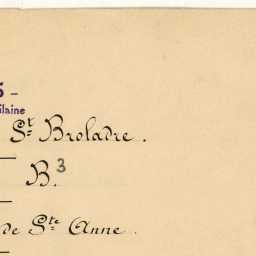 S -
ilaine
St Broladre.
B.3
de Ste Anne.